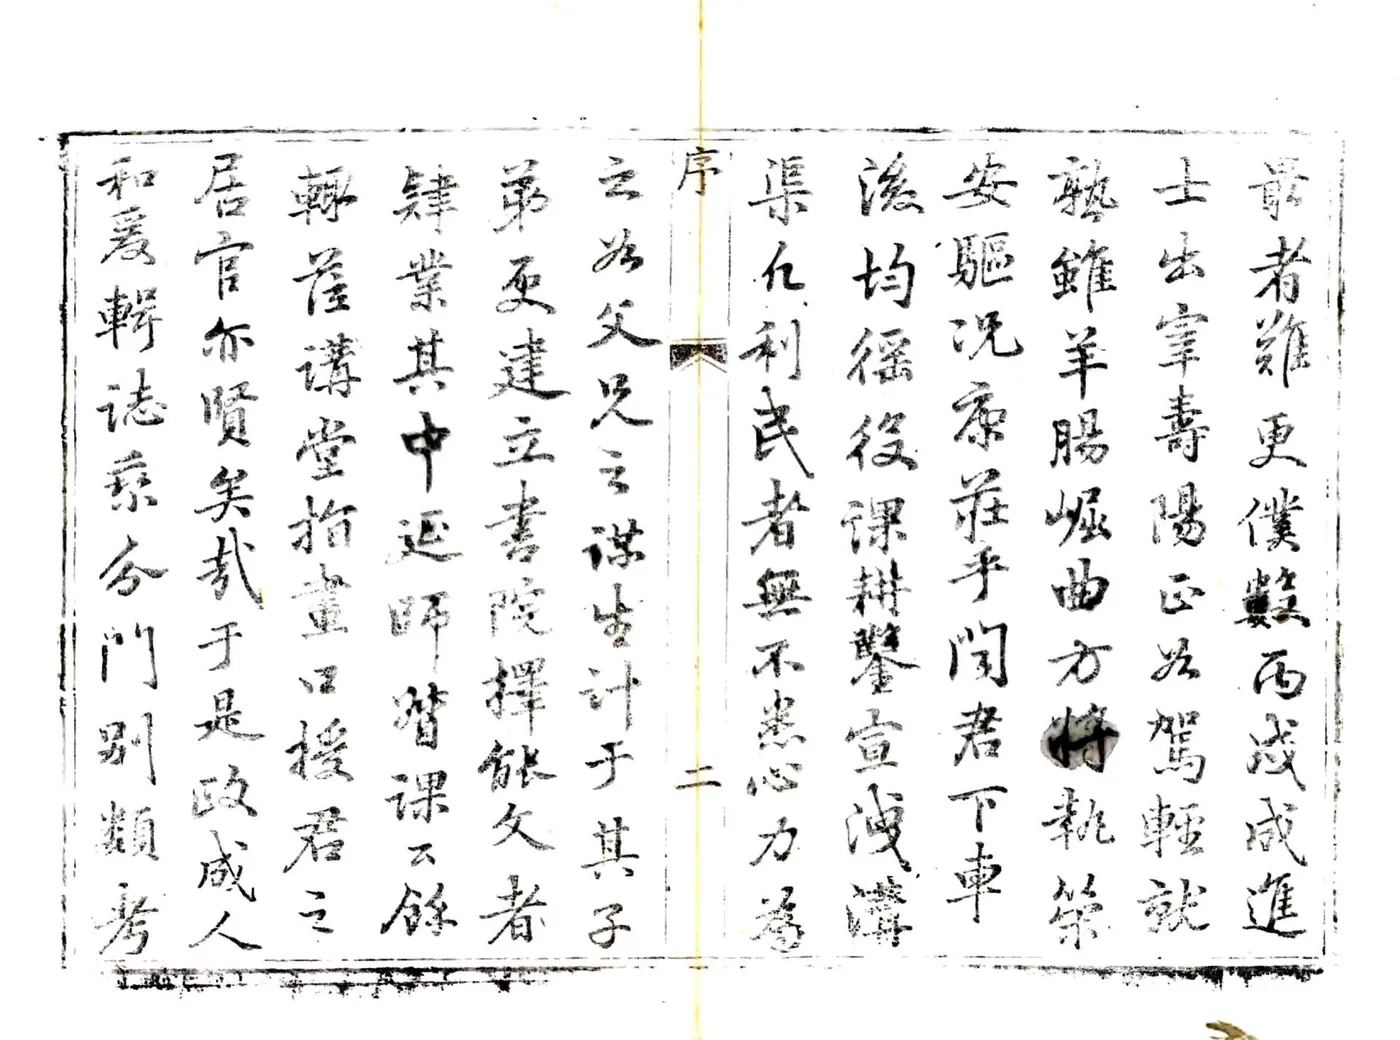 最者難更僕數丙戌成進
士出宰壽陽正如駕輕就
熟雖羊腸崛曲方將執策
安驅況康莊乎閏君下車
後均徭役課耕鑿宣洩溝
渠凡利民者無不悉心力為
序
二
之如父兄之謀生計于其子
弟更建立書院擇能文者
肄業其中延師督課公餘
輒蒞講堂指畫口授君之
居官亦賢矣哉于是政成人
和爰輯誌乘分門別類考